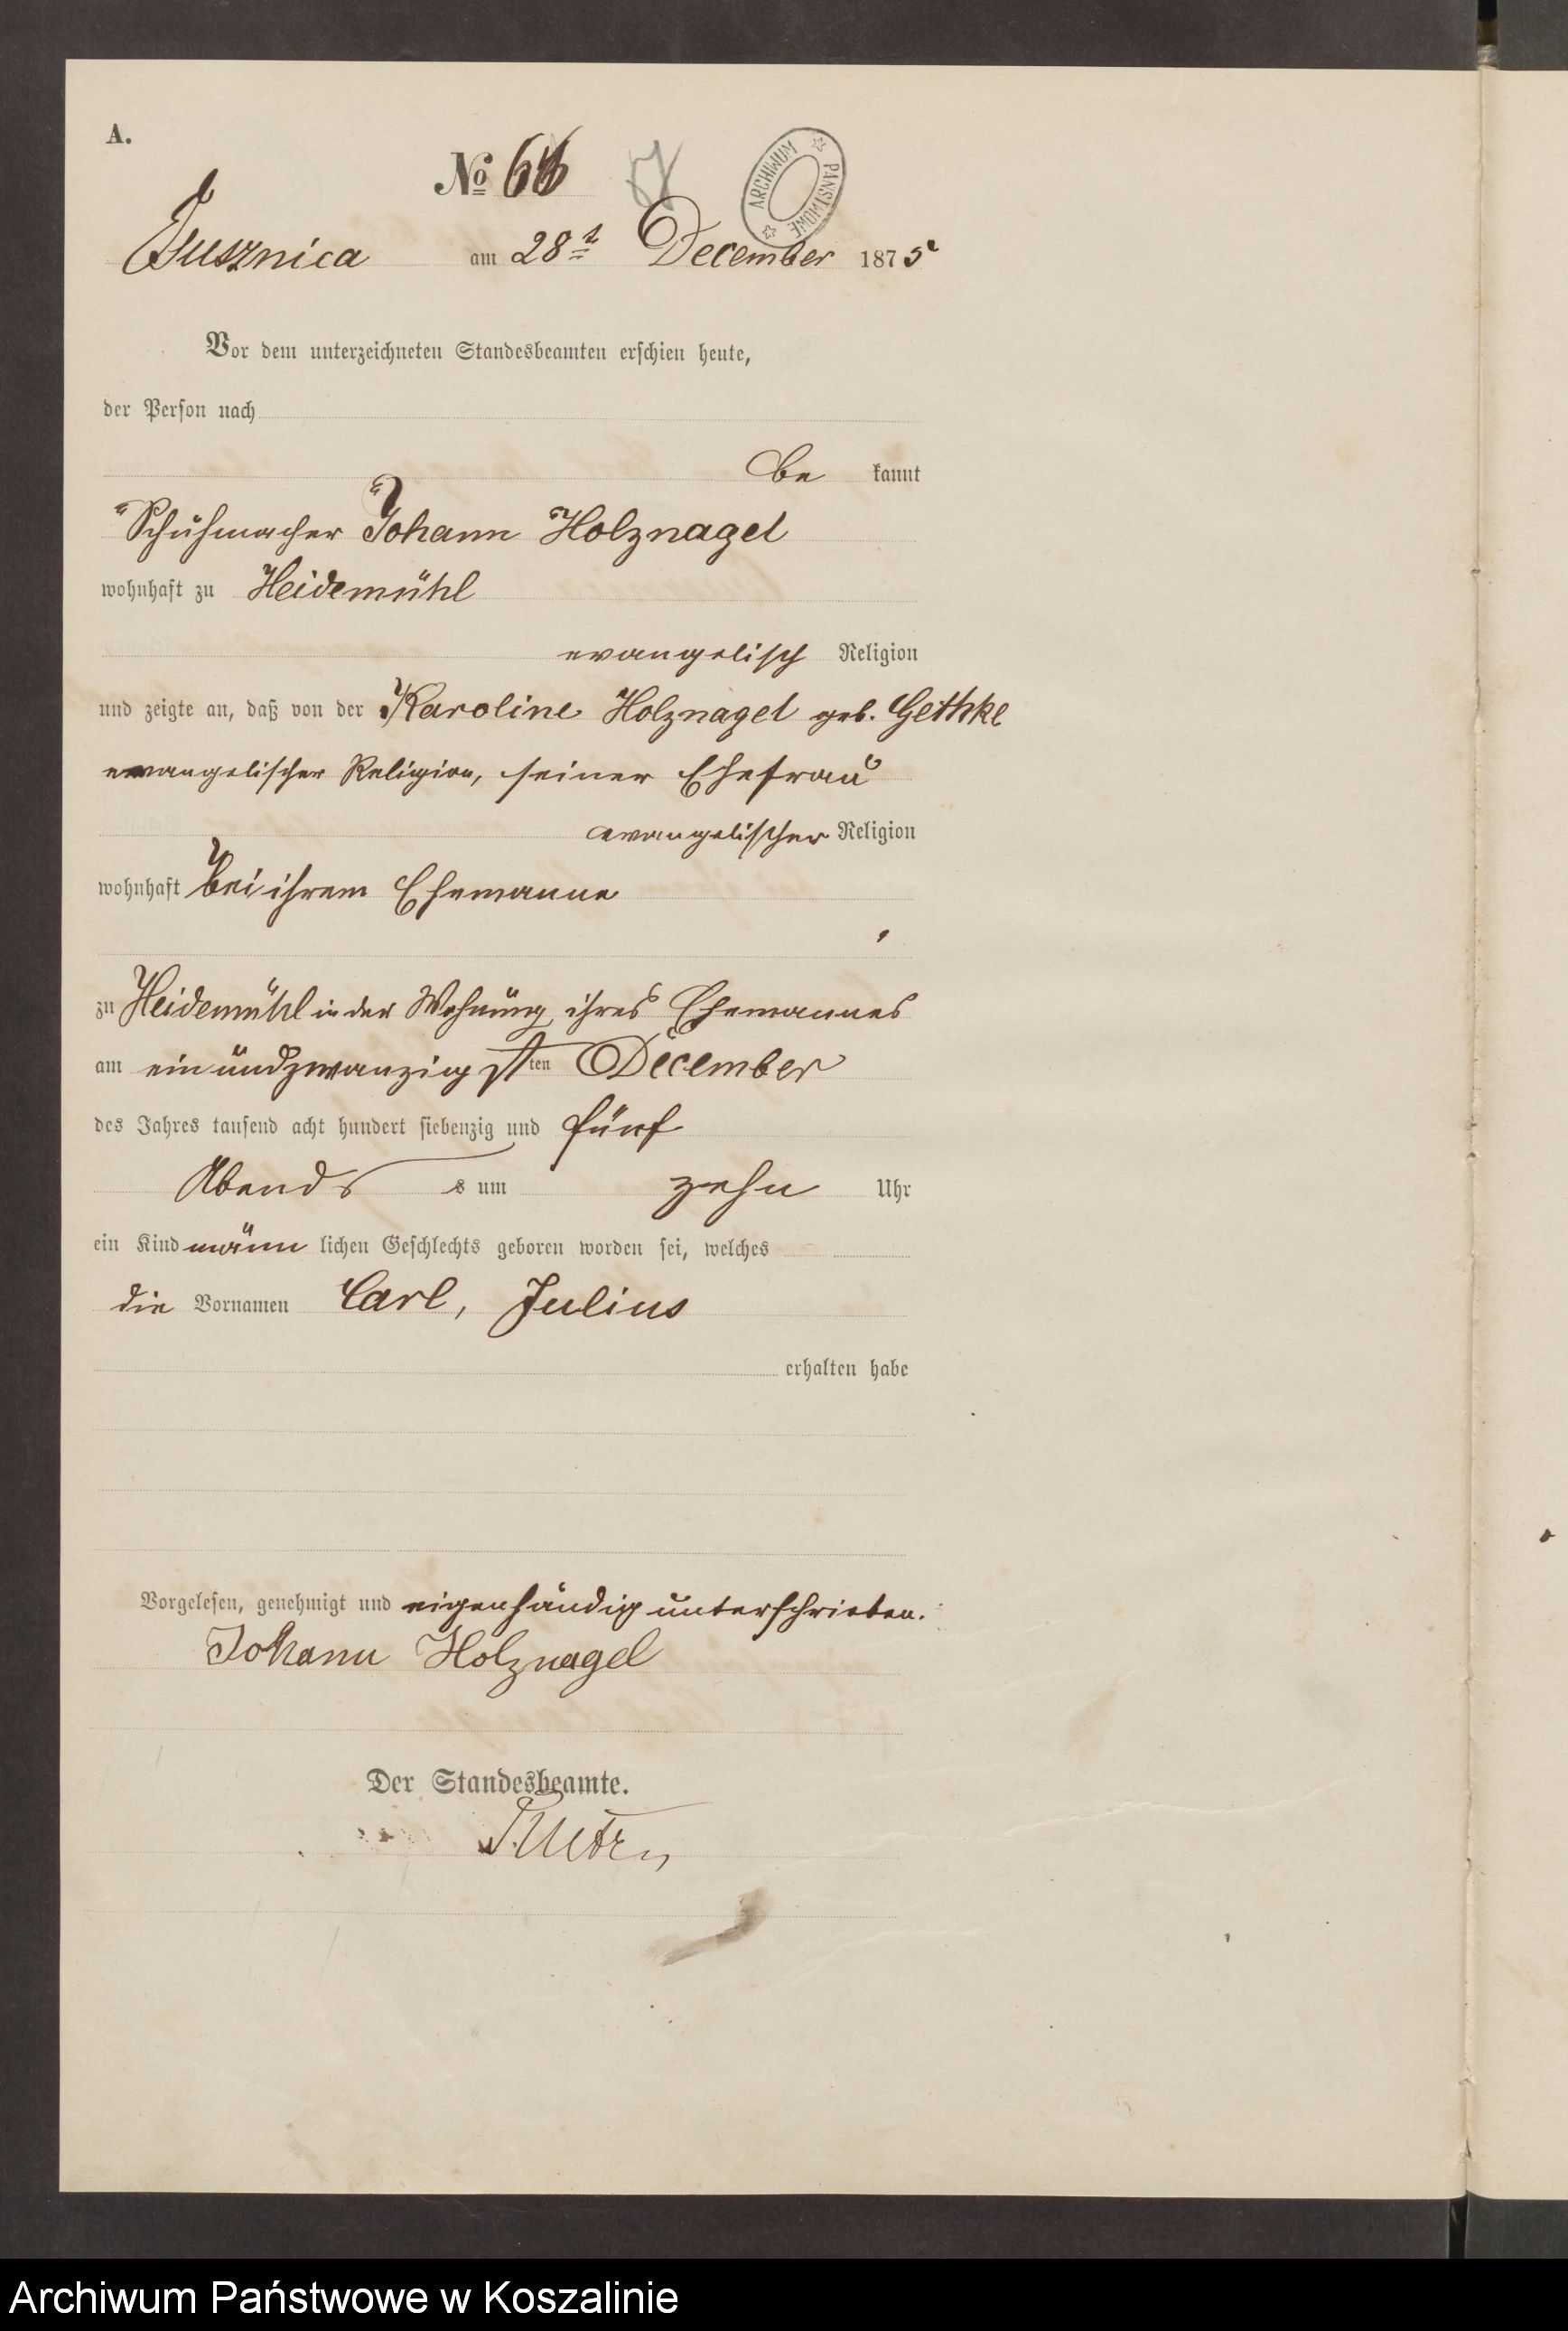 A.
No 66
ARCHIWUM PANSTWOWE
am 28t December 1875
Vor dem unterzeichneten Standesbeamten erschien heute,
der Person nach
be kannt
Schuhmacher Johann Holznagel
wohnhaft zu Heidemühl
evangelisch Religion
und zeigte an, daß von der Karoline Holznagel geb. Gethke
evangelischer Religion, seiner Ehefrau
evangelischer Religion
wohnhaft bei ihrem Ehemanne
,
zu Heidemühl in der Wohnung ihres Ehemannes
am ein und zwanzigsten December
des Jahres tausend acht hundert siebenzig und fünf
Abends s um zehn Uhr
ein Kind männ lichen Geschlechts geboren worden sei, welches
die Vornamen Carl, Julius
erhalten habe
Vorgelesen, genehmigt und eigenhändig unterschrieben.
Johann Holznagel
Der Standesbeamte.
Archiwum Państwowe w Koszalinie